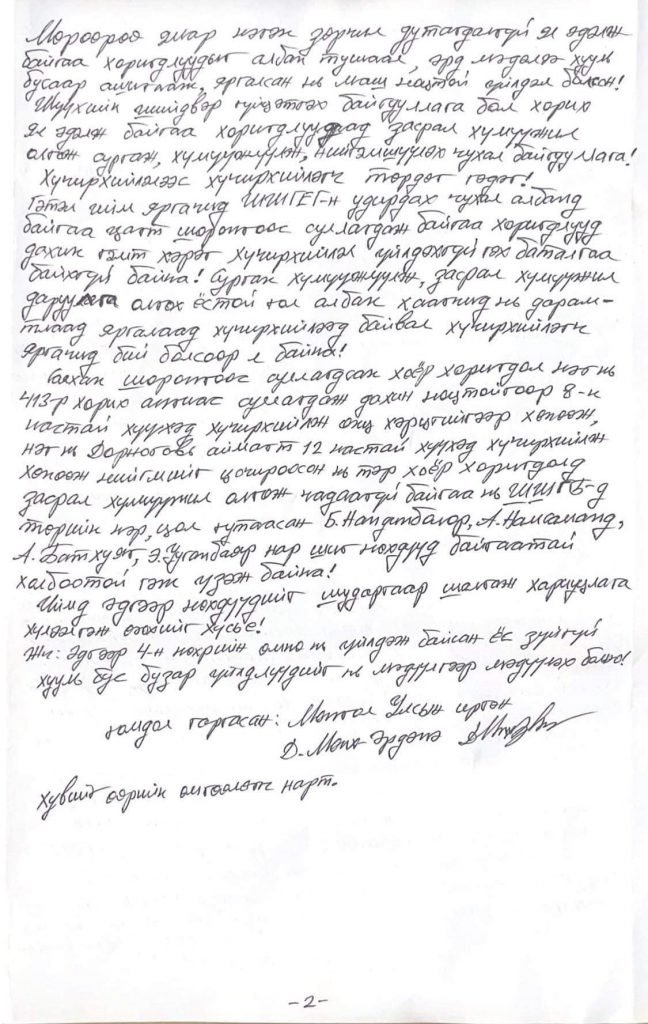 Мөрөөрөө ямар нэгэн зөрчил дутагдалгүй ял эдэлж
байгаа хоригдлуудыг албан тушаал, эрх мэдэлээ хууль
бусаар ашиглаж, яргалсан нь маш ноцтой үйлдэл болсон!
Шүүхийн шийдвэр гүйцэтгэх байгууллага бол хорих
ял эдэлж байгаа хоригдлуудад засрал хүмүүжил
олгон сургаж, хүмүүжүүлэн, нийгэмшүүлэх чухал байгууллага!
Хүчирхийлэлээс хүчирхийлэгч төрдөг гэдэг!
Гэтэл ийм яргачид ШШГЕГ-н удирдах чухал албанд
байгаа цагт шоронгоос суллагдаж байгаа хоригдлууд
дахин гэмт хэрэг хүчирхийлэл үйлдэхгүй гэх баталгаа
байхгүй байна! Сургаж хүмүүжүүлж, засрал хүмүүжил
даруулга олгох ёстой гол албан хаагчид нь дарам-
тлаад яргалаад хүчирхийлээд байвал хүчирхийлэгч
яргачид бий болсоор л байна!
Саяхан шоронгоос суллагдсан хоёр хоригдол нэг нь
413-р хорих ангиас суллагдаж дахин ноцтойгоор 8-н
настай хүүхэд хүчирхийлэн онц хэрцгийгээр хөнөөж,
нэг нь Дорноговь аймагт 12 настай хүүхэд хүчирхийлэн
хөнөөж нийгмийг цочироосон нь тэр хоёр хоригдолд
засрал хүмүүжил олгож чадаагүй байгаа нь ШШГЕГ-д
төрийн нэр, цол гутаасан Б.Нандинбаяр, А.Намсалманд,
А.Батхуяг, Э.Ууганбаяр нар шиг нөхдүүд байгаатай
холбоотой гэж үзэж байна!
Иймд эдгээр нөхдүүдийг шударгаар шалгаж хариуцлага
хүлээлгэж өгөхийг хүсье!
Жич: Эдгээр 4-н нөхрийн өмнө нь үйлдэж байсан ёс зүйгүй
хууль бус бузар үйлдлүүдийг нь мэдүүлгээр мэдүүлэх болно!
Гомдол гаргасан: Монгол Улсын иргэн
Д.Мөнх-Эрдэнэ
Хувийг өөрийн өмгөөлөгч нарт.
-2-